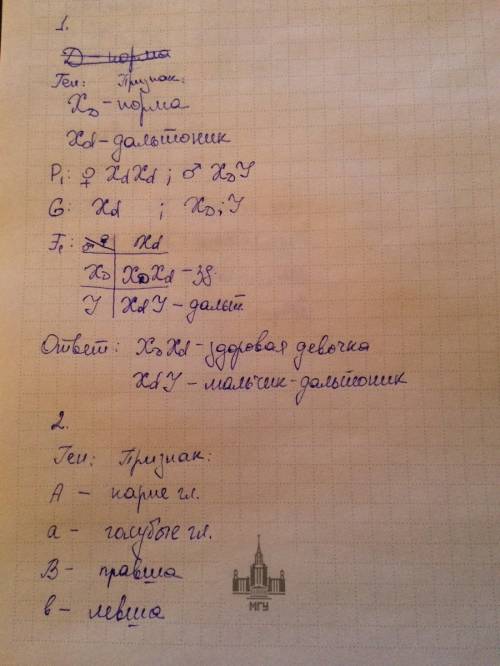 1.
D – норма
Ген: Признак:
XD – норма
Xd – дальтоник
P1: ♀ XdXd ; ♂ XDY
G: Xd ; XD ; Y
F1: ♂ ♀ Xd
XD XDXd – зд.
Y XdY – дальт
Ответ: XDXd – здоровая девочка
XdY – мальчик-дальтоник
2.
Ген: Признак:
А – карие гл.
а – голубые гл.
В – правша
в – левша
МГУ